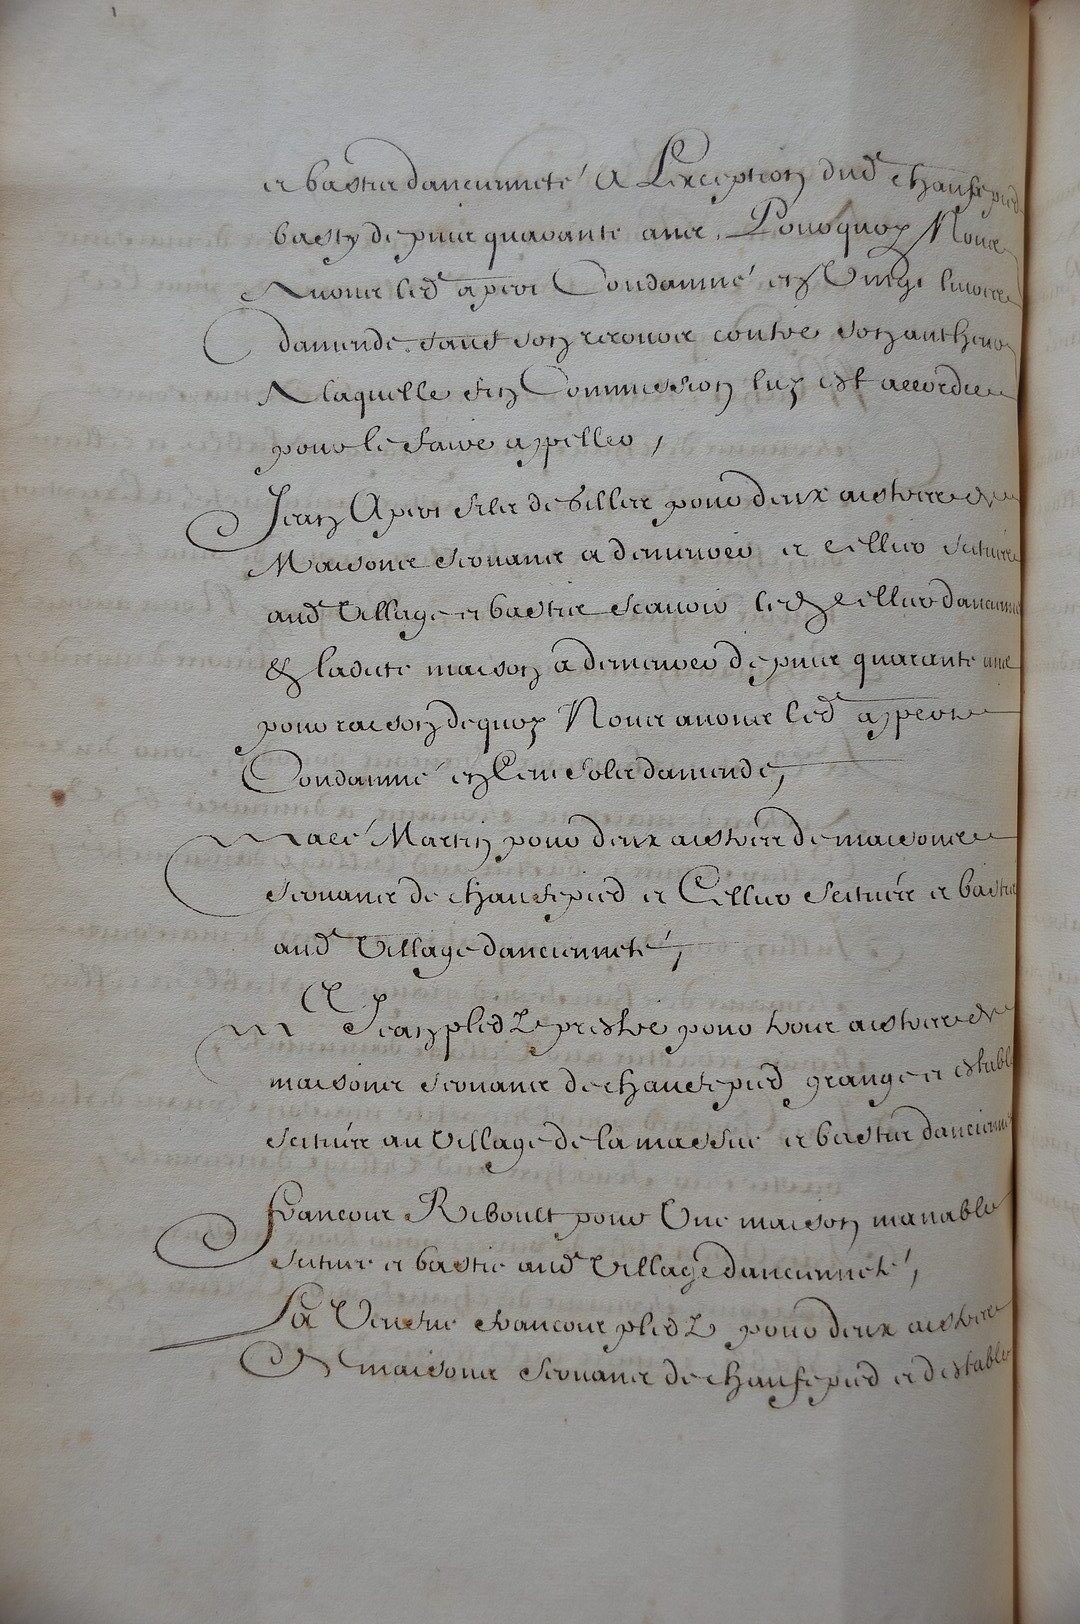 et basties dancienneté A Lexception dud chaufepied
basty depuis quarante ans. Pourquoy Nous
Avons led apvri Condamné en Vingt livres
damende. Sauf son recours contre son autheur
A laquelle fin Commission luy est accordée
pour le faire appeller,
Jean Apvri fils de Gilles pour deux aistres de
Maisons servans a demeurer et cellier scituées
aud Village et basties scavoir led cellier dancienneté
& ladite maison a demeurer depuis quarante ans
pour raison dequoy Nous avons led apvri
Condamné en Cent sols damende,
Macé Martin pour deux aistres de maisons
servans de chaufepied et Cellier scituées et basties
aud Village dancienneté,
Me Jean pledz prestre pour trois aistres de
maisons servans de chaufepied grange et estable
scituées au Village de la massue et basties dancienneté
francois Riboult pour Une maison manable
scituée et bastie aud Village dancienneté,
La Veufve francois pledz pour deux aistres
de maisons servans de chaufepied et destable